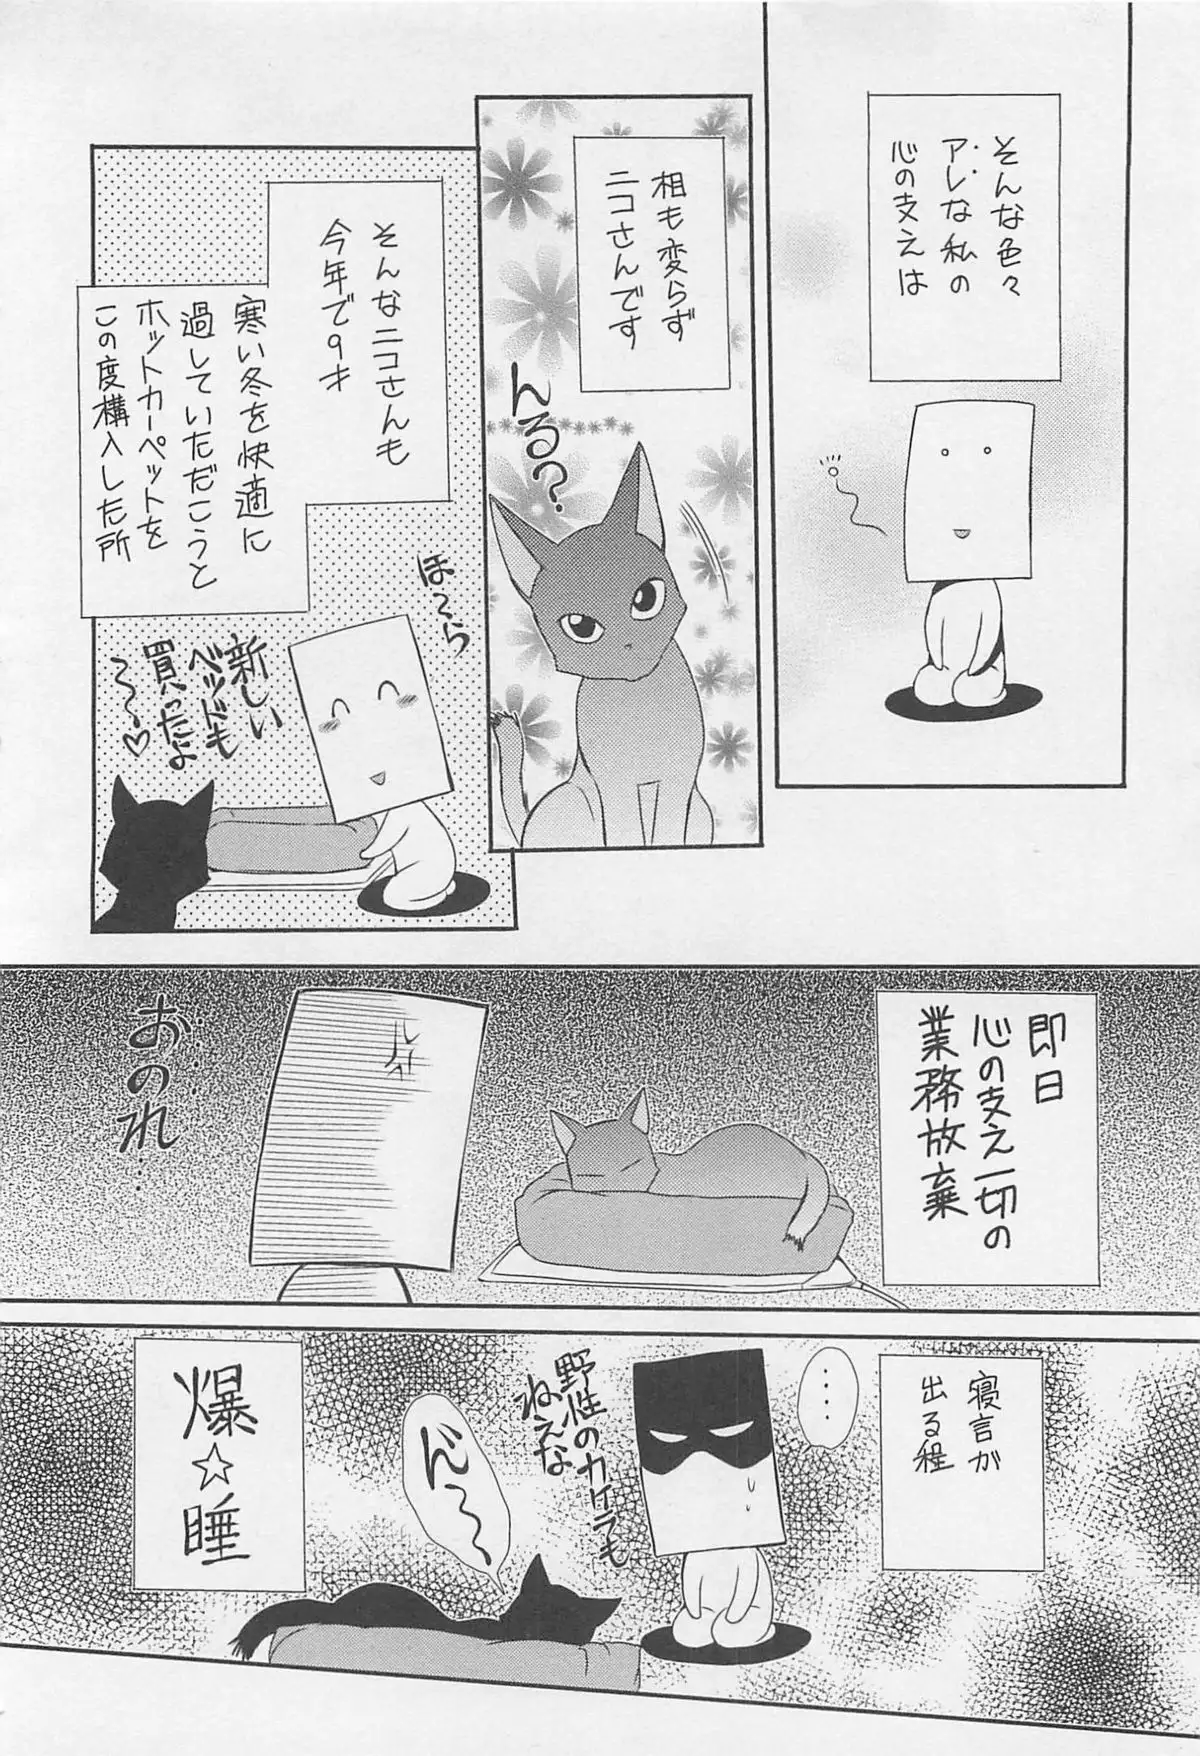 そんな色々
アレな私の
心の支えは
相も変らず
ニコさんです
んる?
そんなニコさんも
今年で9才
寒い冬を快適に
過していただこうと
ホットカーペットを
この度構入した所
ほ〜ら
新しい
ベッドも
買ったよ
〜〜♡
即日
心の支え一切の
業務放棄
おのれ…
寝言が
出る程
…
野性のカケラも
ねえな
んご〜
爆☆睡